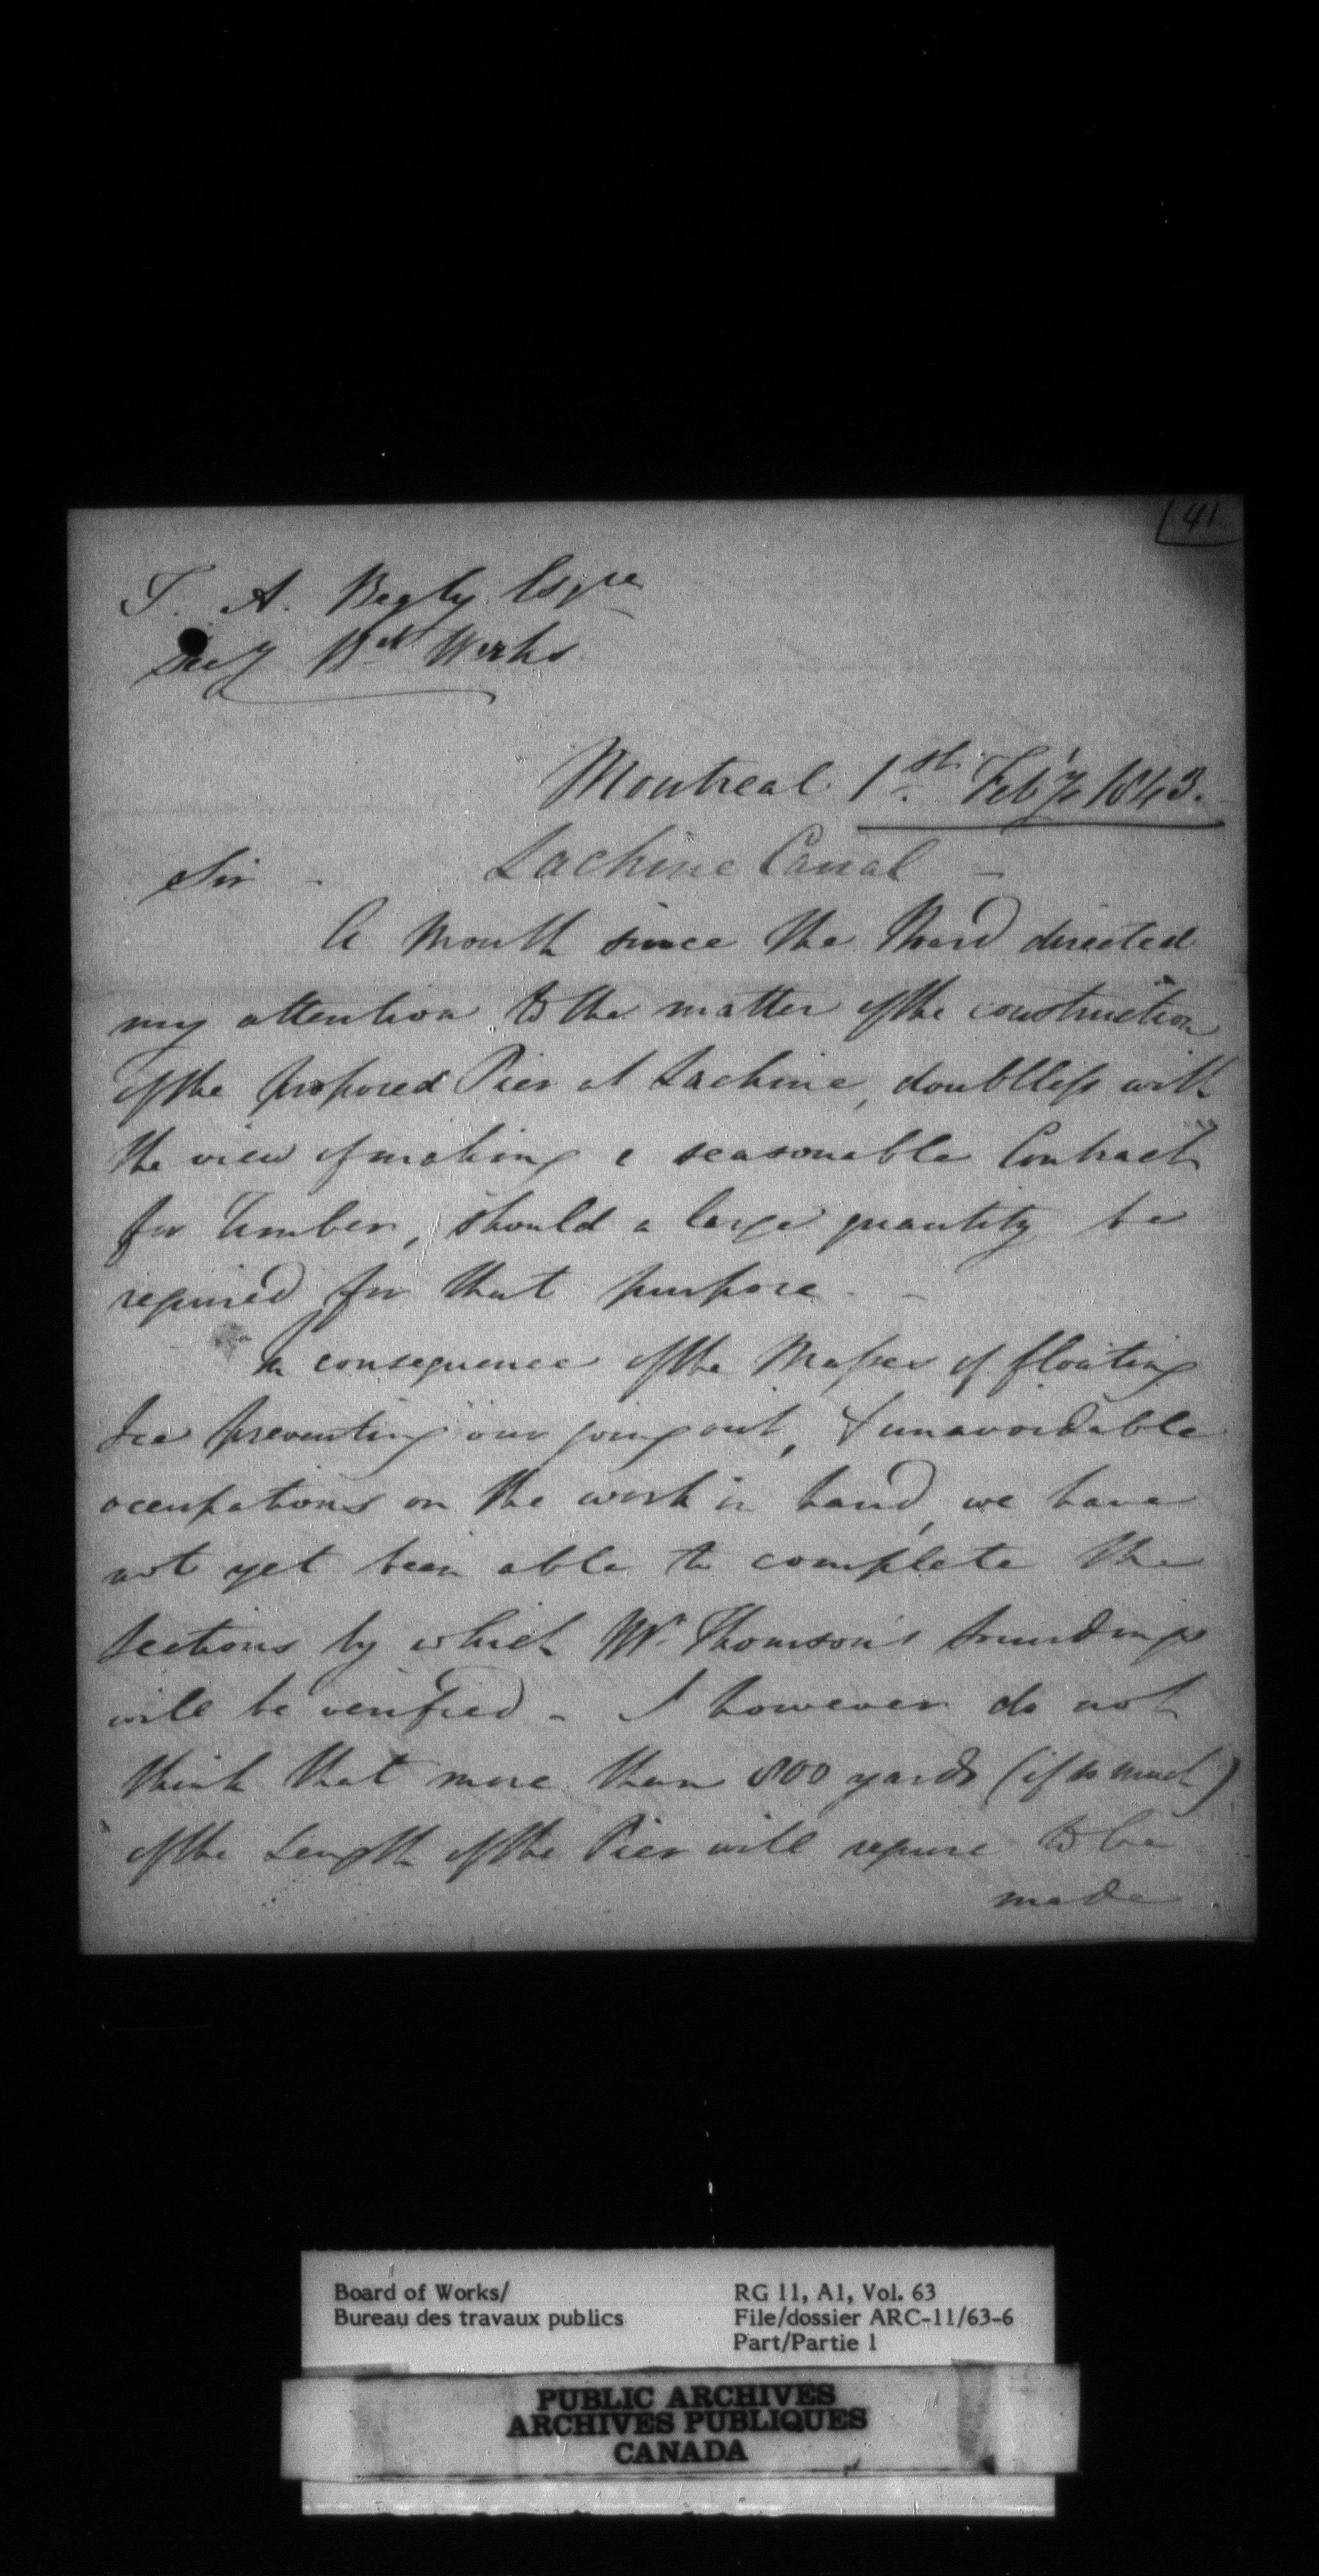 41
T. A. Begly Esqre
Secy Bd Works
Montreal 1st. Feby 1843.
Lachine Canal -
Sir -
A Month since the Board directed
my attention to the matter of the construction
of the proposed Pier at Lachine, doubtless with
the view of making a seasonable Contract
for Timber, should a large quantity be
required for that purpose. -
In consequence of the Masses of floating
Ice preventing our going out, & unavoidable
occupations on the work in hand, we have
not yet been able to complete the
Sections by which Mr. Thomson's soundings
will be verified - I however do not
think that more than 800 yards (if so much)
of the Length of the Pier will require to be
made
Board of Works/
Bureau des travaux publics
RG 11, A1, Vol. 63
File/dossier ARC-11/63-6
Part/Partie 1
PUBLIC ARCHIVES
ARCHIVES PUBLIQUES
CANADA